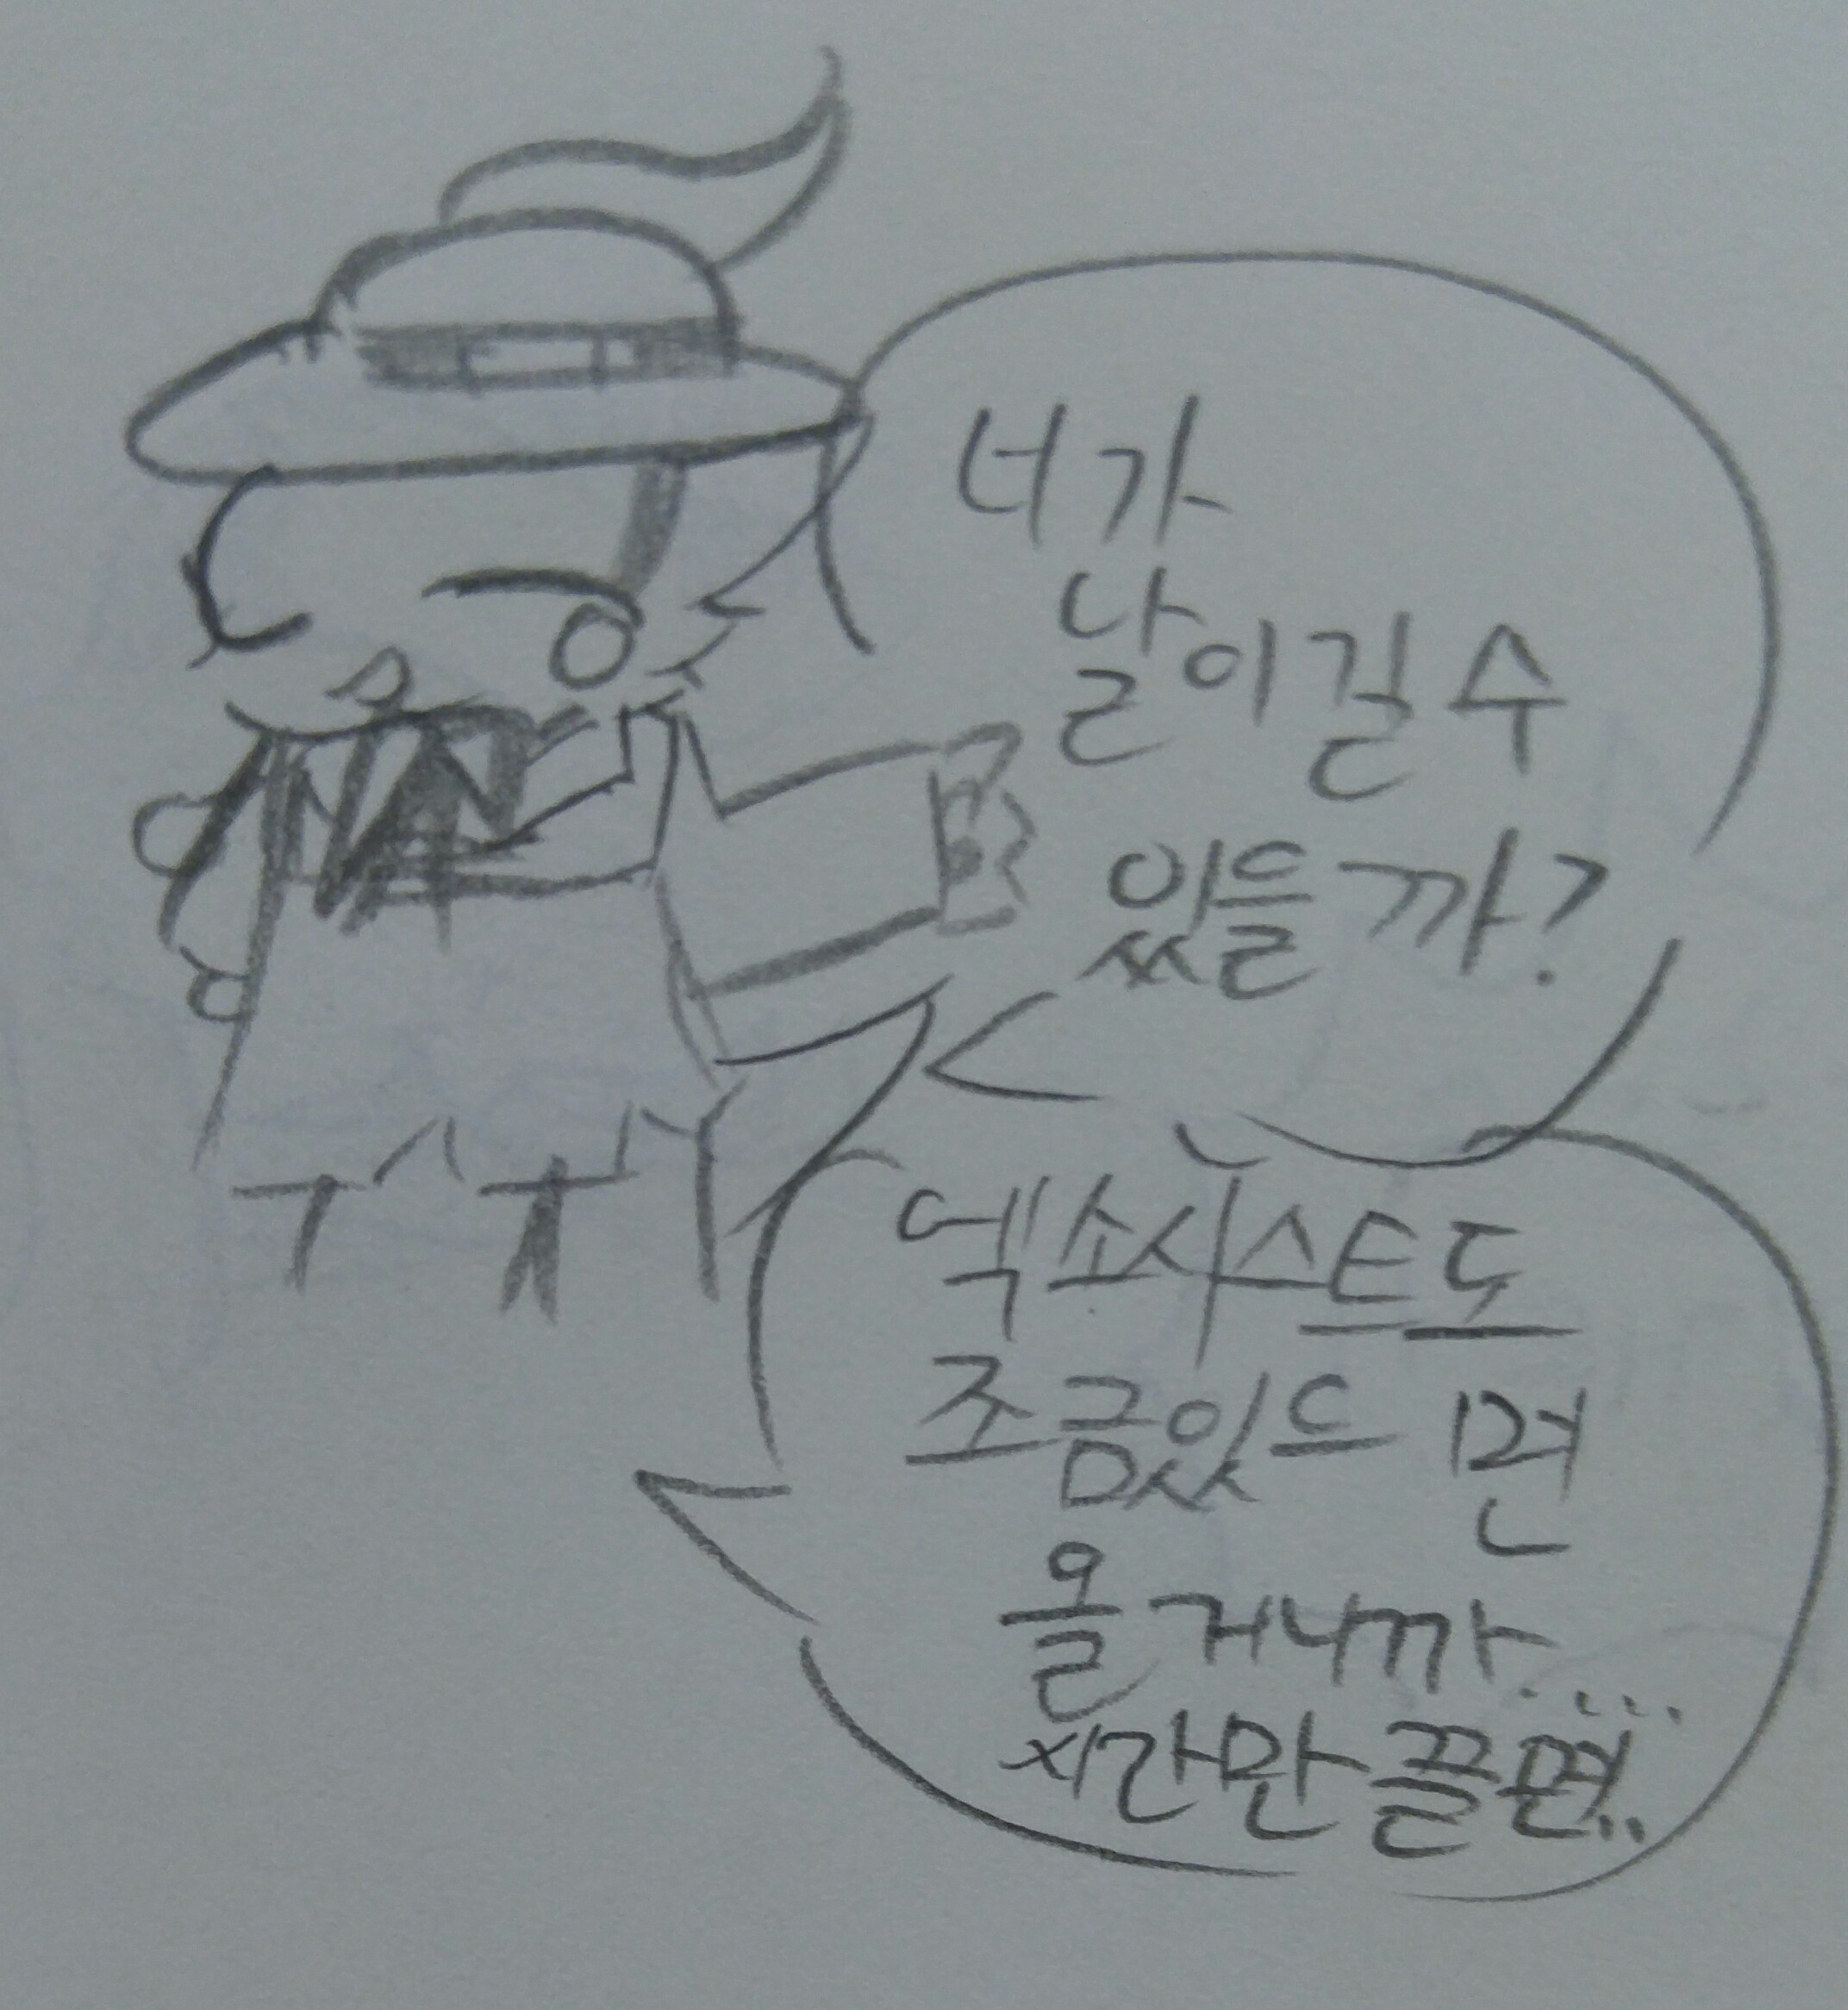 너가
날이길수
있을까?
엑소시스트도
조금있으면
올거니까....
시간만끌면..